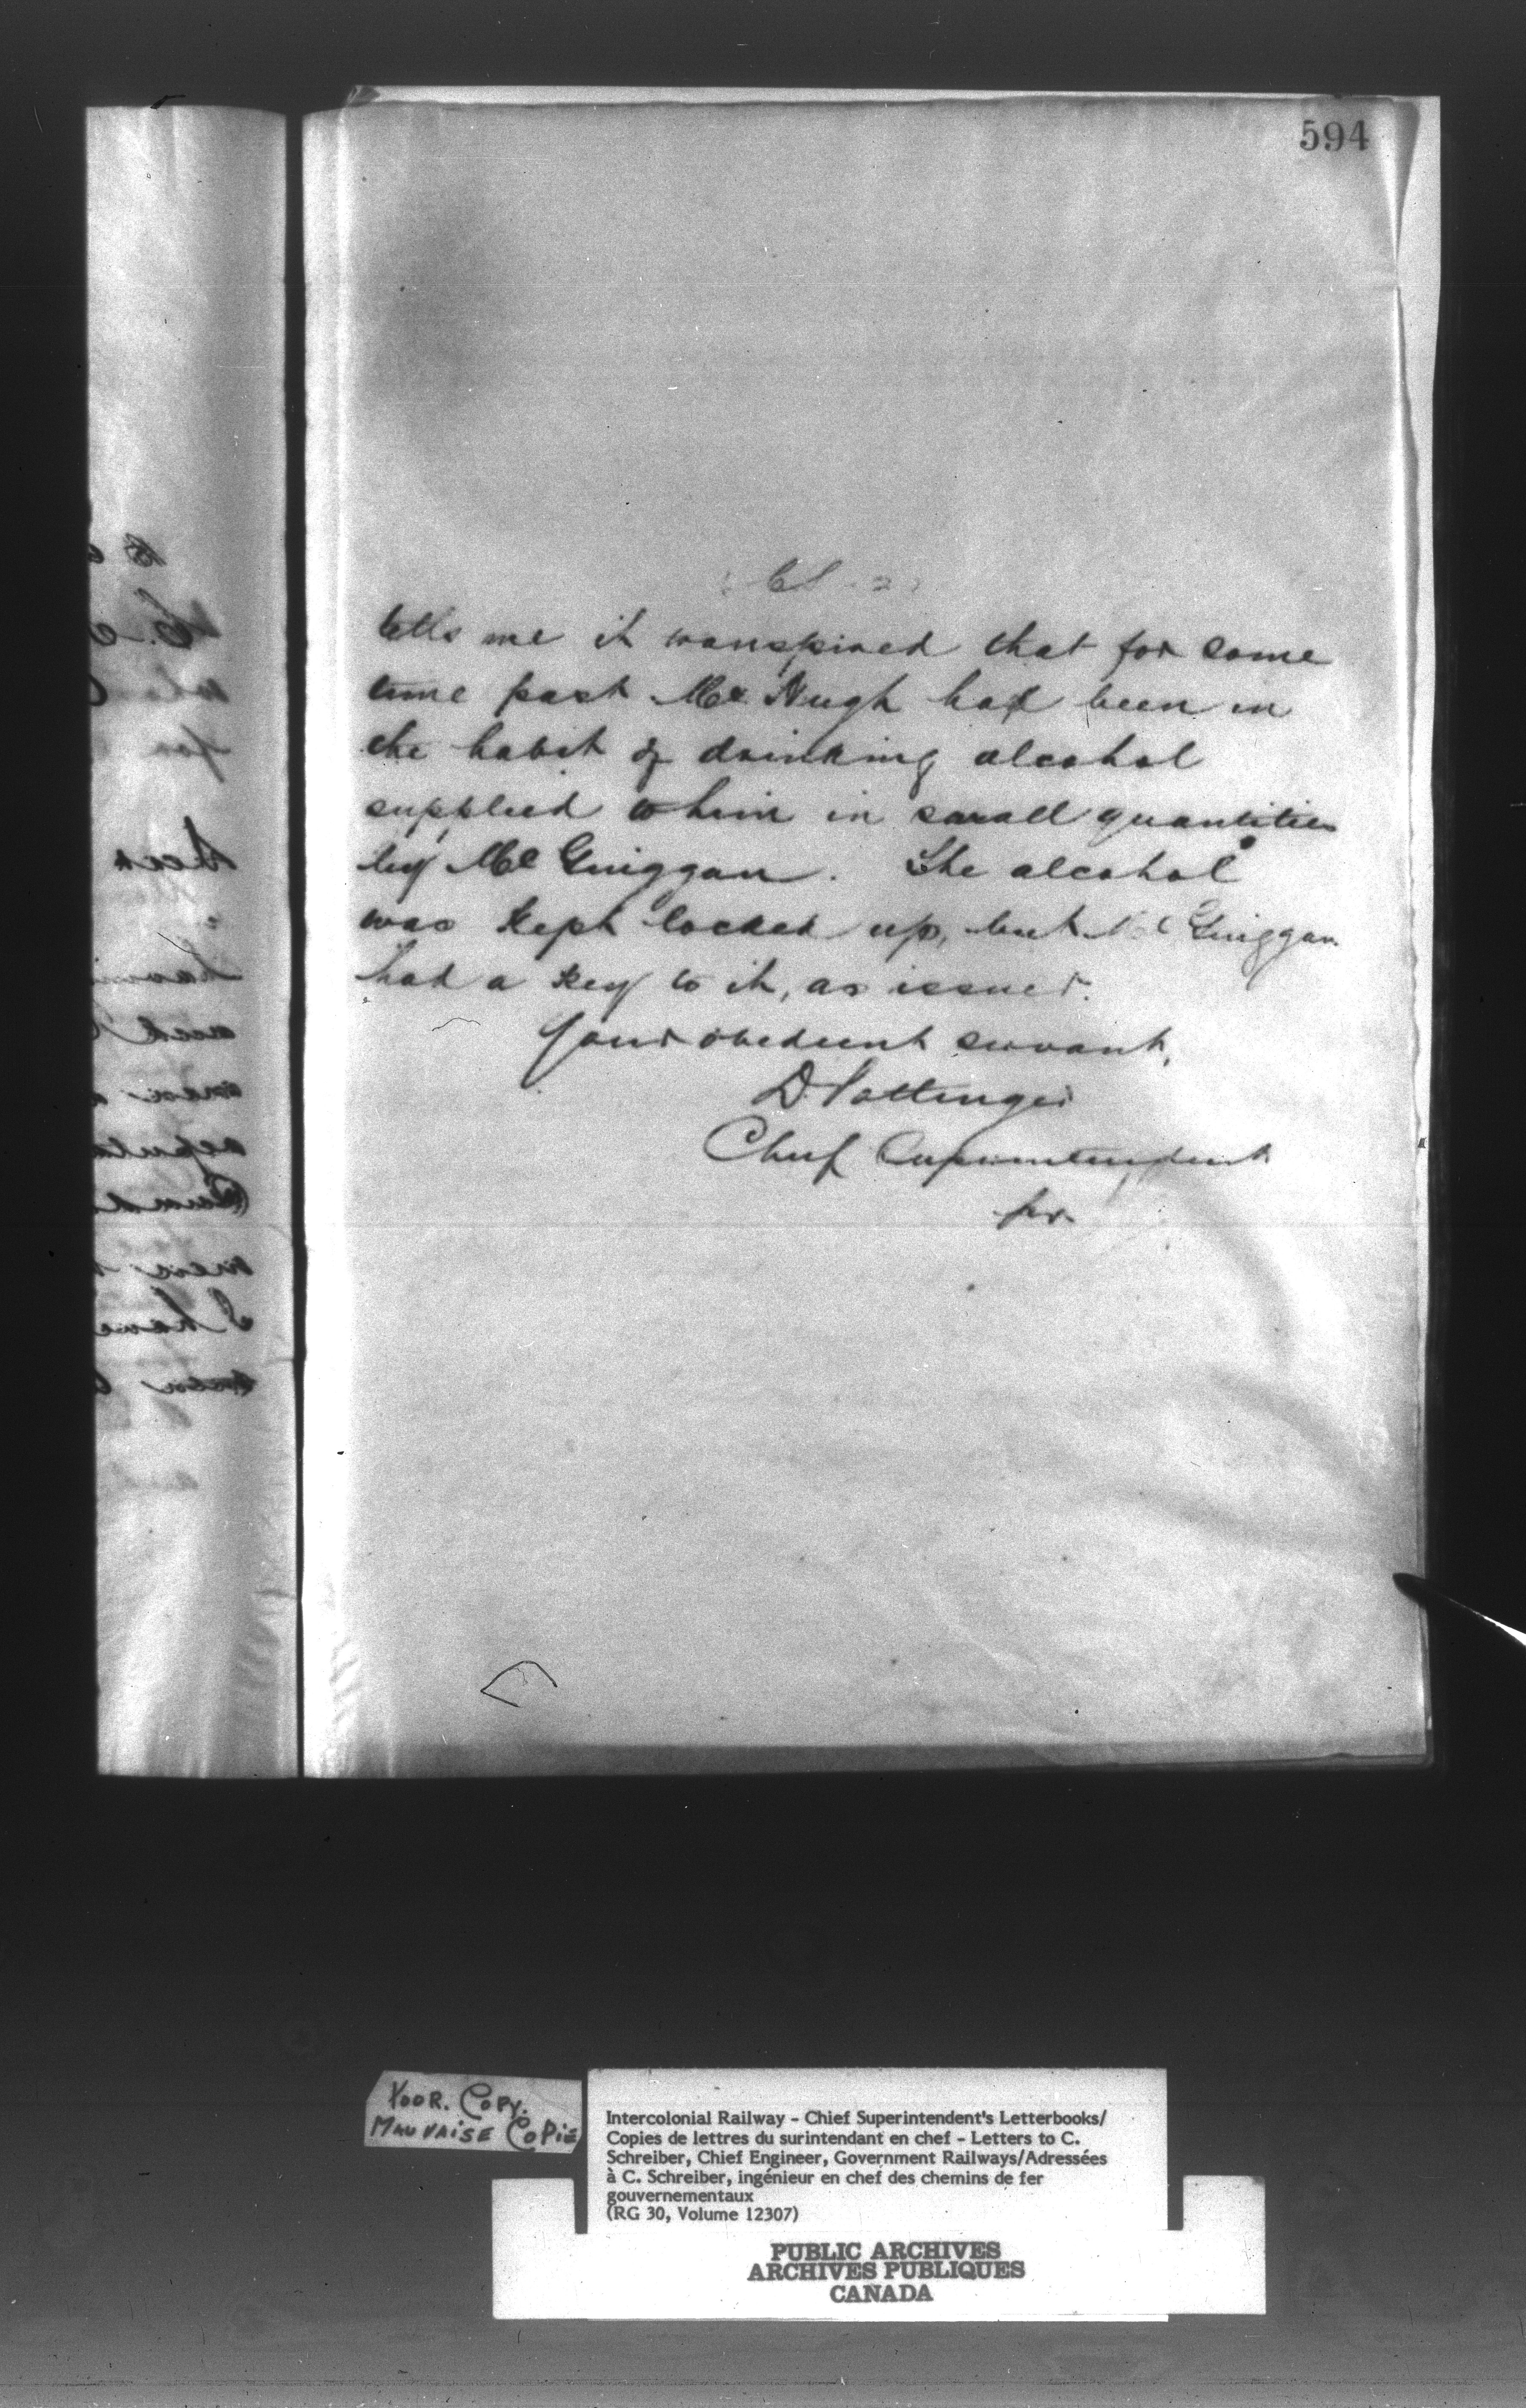 594
tells me it transpired that for some
time past Mc Hugh had been in
the habit of drinking alcohol
supplied to him in small quantities
by Mc Guiggan. The alcohol
was kept locked up, but Mc Guiggan
had a key to it, as issuer.
Your obedient servant,
D. Pottinger
Chief Superintendent
POOR. COPY.
MAUVAISE COPIE
Intercolonial Railway - Chief Superintendent's Letterbooks/
Copies de lettres du surintendant en chef - Letters to C.
Schreiber, Chief Engineer, Government Railways/Adressées
à C. Schreiber, ingénieur en chef des chemins de fer
gouvernementaux
(RG 30, Volume 12307)
PUBLIC ARCHIVES
ARCHIVES PUBLIQUES
CANADA